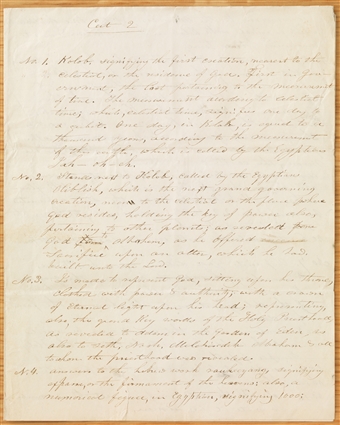 Cut 2
No. 1. Kolob, signifying the first creation, nearest to the
celestial, or the residence of God. First in gov-
ernment, the last pertaining to the measurement
of time. The measurement according to celestial
time; which, celestial time, signifies one day to
a cubit. One day, in Kolob, is equal to a
thousand years, according to the measurement
of this earth, which is called by the Egyptians
Jah-oh-eh.
No. 2. Stands next to Kolob, called by the Egyptians
Oliblish, which is the next grand governing
creation, near to the celestial or the place where
God resides, holding the key of power also,
pertaining to other planets; as revealed from
God to Abraham, as he offered
Sacrifice upon an alter, which he had
built unto the Lord.
No. 3. Is made to represent God, sitting upon his throne,
Clothed with power & authority, with a crown
of Eternal light upon his head; representing
also, the grand Key words of the Holy Priesthood,
as revealed to Adam in the Garden of Eden, as
also to Seth, Noah, Melchizedek Abraham & all
to whom the priesthood was revealed.
No. 4. answers to the hebrew word signifying
expanse, or the firmament of the heavens; also, a
numerical figure, in Egyptian, signifying 1000;